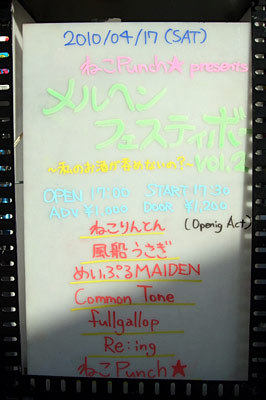 2010/04/17 (SAT)
ねこPunch☆ presents
メルヘン
フェスティボー
vol.2
～私のお酒が呑めないの?～
OPEN 17:00 START 17:30
ADV ¥1,000 DOOR ¥1,200
ねこりんとん (Openig Act)
風船うさぎ
めいぷるMAIDEN
Common Tone
fullgallop
Re:ing
ねこPunch★